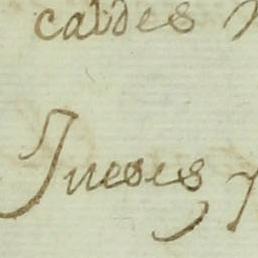 caldes
Jueses y